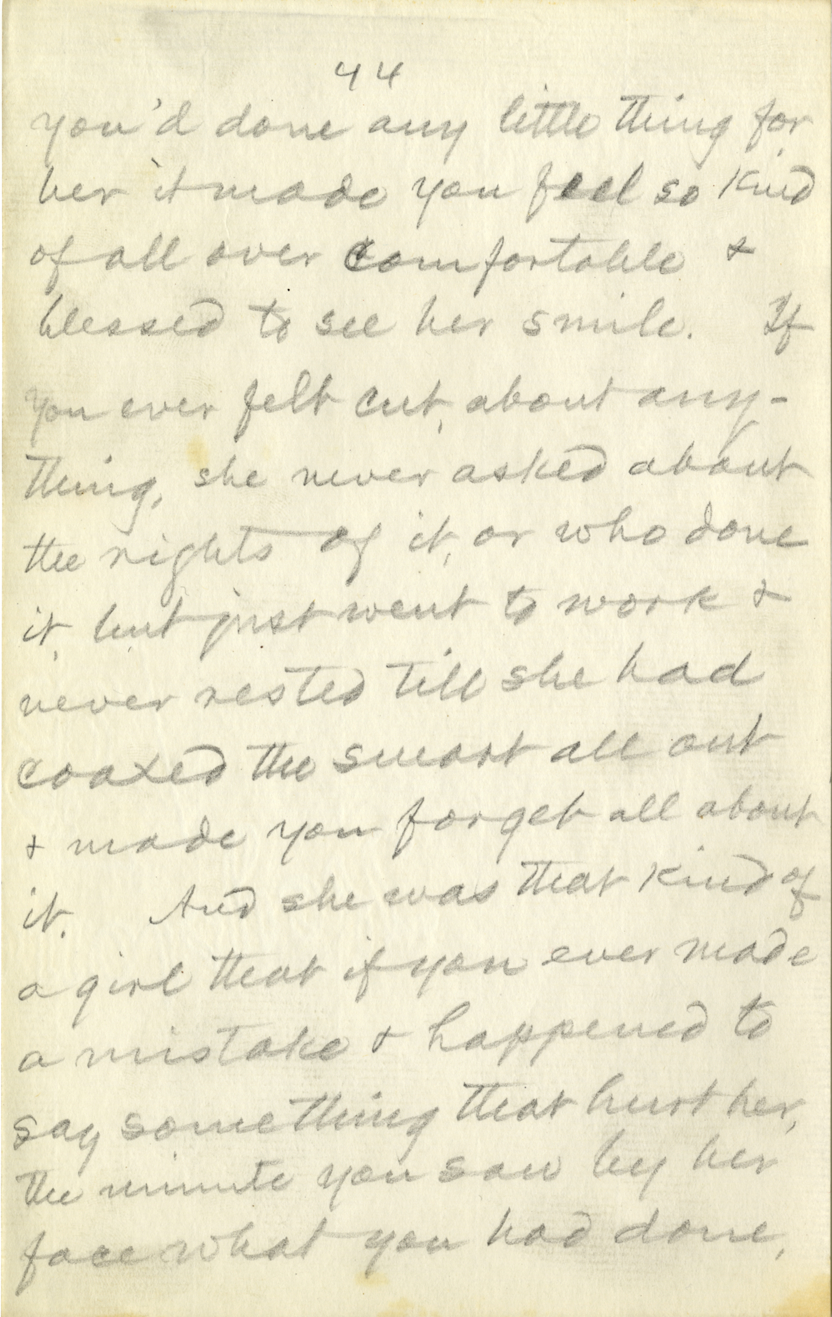 44
you'd done any little thing for
her it made you feel so kind
of all over comfortable &
blessed to see her smile. If
you ever felt cut, about any-
thing, she never asked about
the rights of it, or who done
it, but just went to work &
never rested till she had
coaxed the smart all out
& made you forget all about
it. And she was that kind of
a girl that if you ever made
a mistake & happened to
say something that hurt her,
the minute you saw by her
face what you had done,